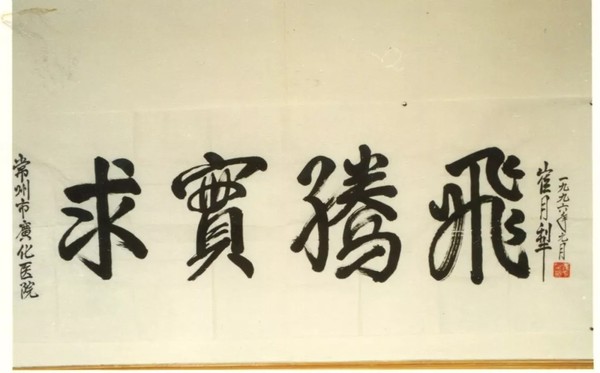 常州市廣化医院
求實騰飛
崔月犁
一九九六年元月